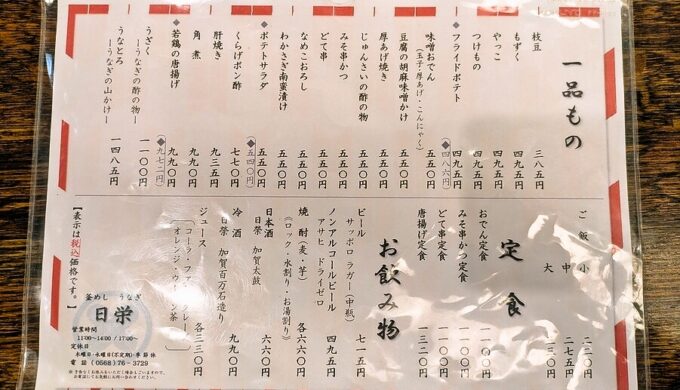 一品もの
枝豆 三八五円
もずく 四九五円
やっこ 四九五円
つけもの 四九五円
◆フライドポテト 四九五円
◆(四八六円)
味噌おでん 五五〇円
(玉子・厚あげ・こんにゃく)
豆腐の胡麻味噌かけ 五五〇円
厚あげ焼き 五五〇円
じゅんさいの酢の物 五五〇円
みそ串かつ 五五〇円
どて串 五五〇円
なめこおろし 五五〇円
わかさぎ南蛮漬け 五五〇円
◆ポテトサラダ 五五〇円
◆(五四〇円)
くらげポン酢 七七〇円
肝焼き 九三五円
角煮 九九〇円
◆若鶏の唐揚げ 九九〇円
◆(九七二円)
うざく 一一〇〇円
―うなぎの酢の物―
うなとろ 一四八五円
―うなぎの山かけ―
ご飯 小 二二〇円
中 二七五円
大 三三〇円
定食
おでん定食 一一〇〇円
みそ串かつ定食 一一〇〇円
どて串定食 一一〇〇円
唐揚げ定食 一三二〇円
お飲み物
ビール
サッポロ ラガー(中瓶) 七一五円
ノンアルコールビール
アサヒ ドライゼロ 四九五円
焼酎(麦・芋) 各五五〇円
(ロック・水割り・お湯割り)
日本酒
日榮 加賀太鼓 六六〇円
冷酒
日榮 加賀百万石造り 九九〇円
ジュース 各三三〇円
【表示は税込価格です。】
釜めし うなぎ
日栄
営業時間
11:00~14:00 / 17:00~
定休日
木曜日・水曜日(不定期)・季節休
電話 (0568) 76-3729